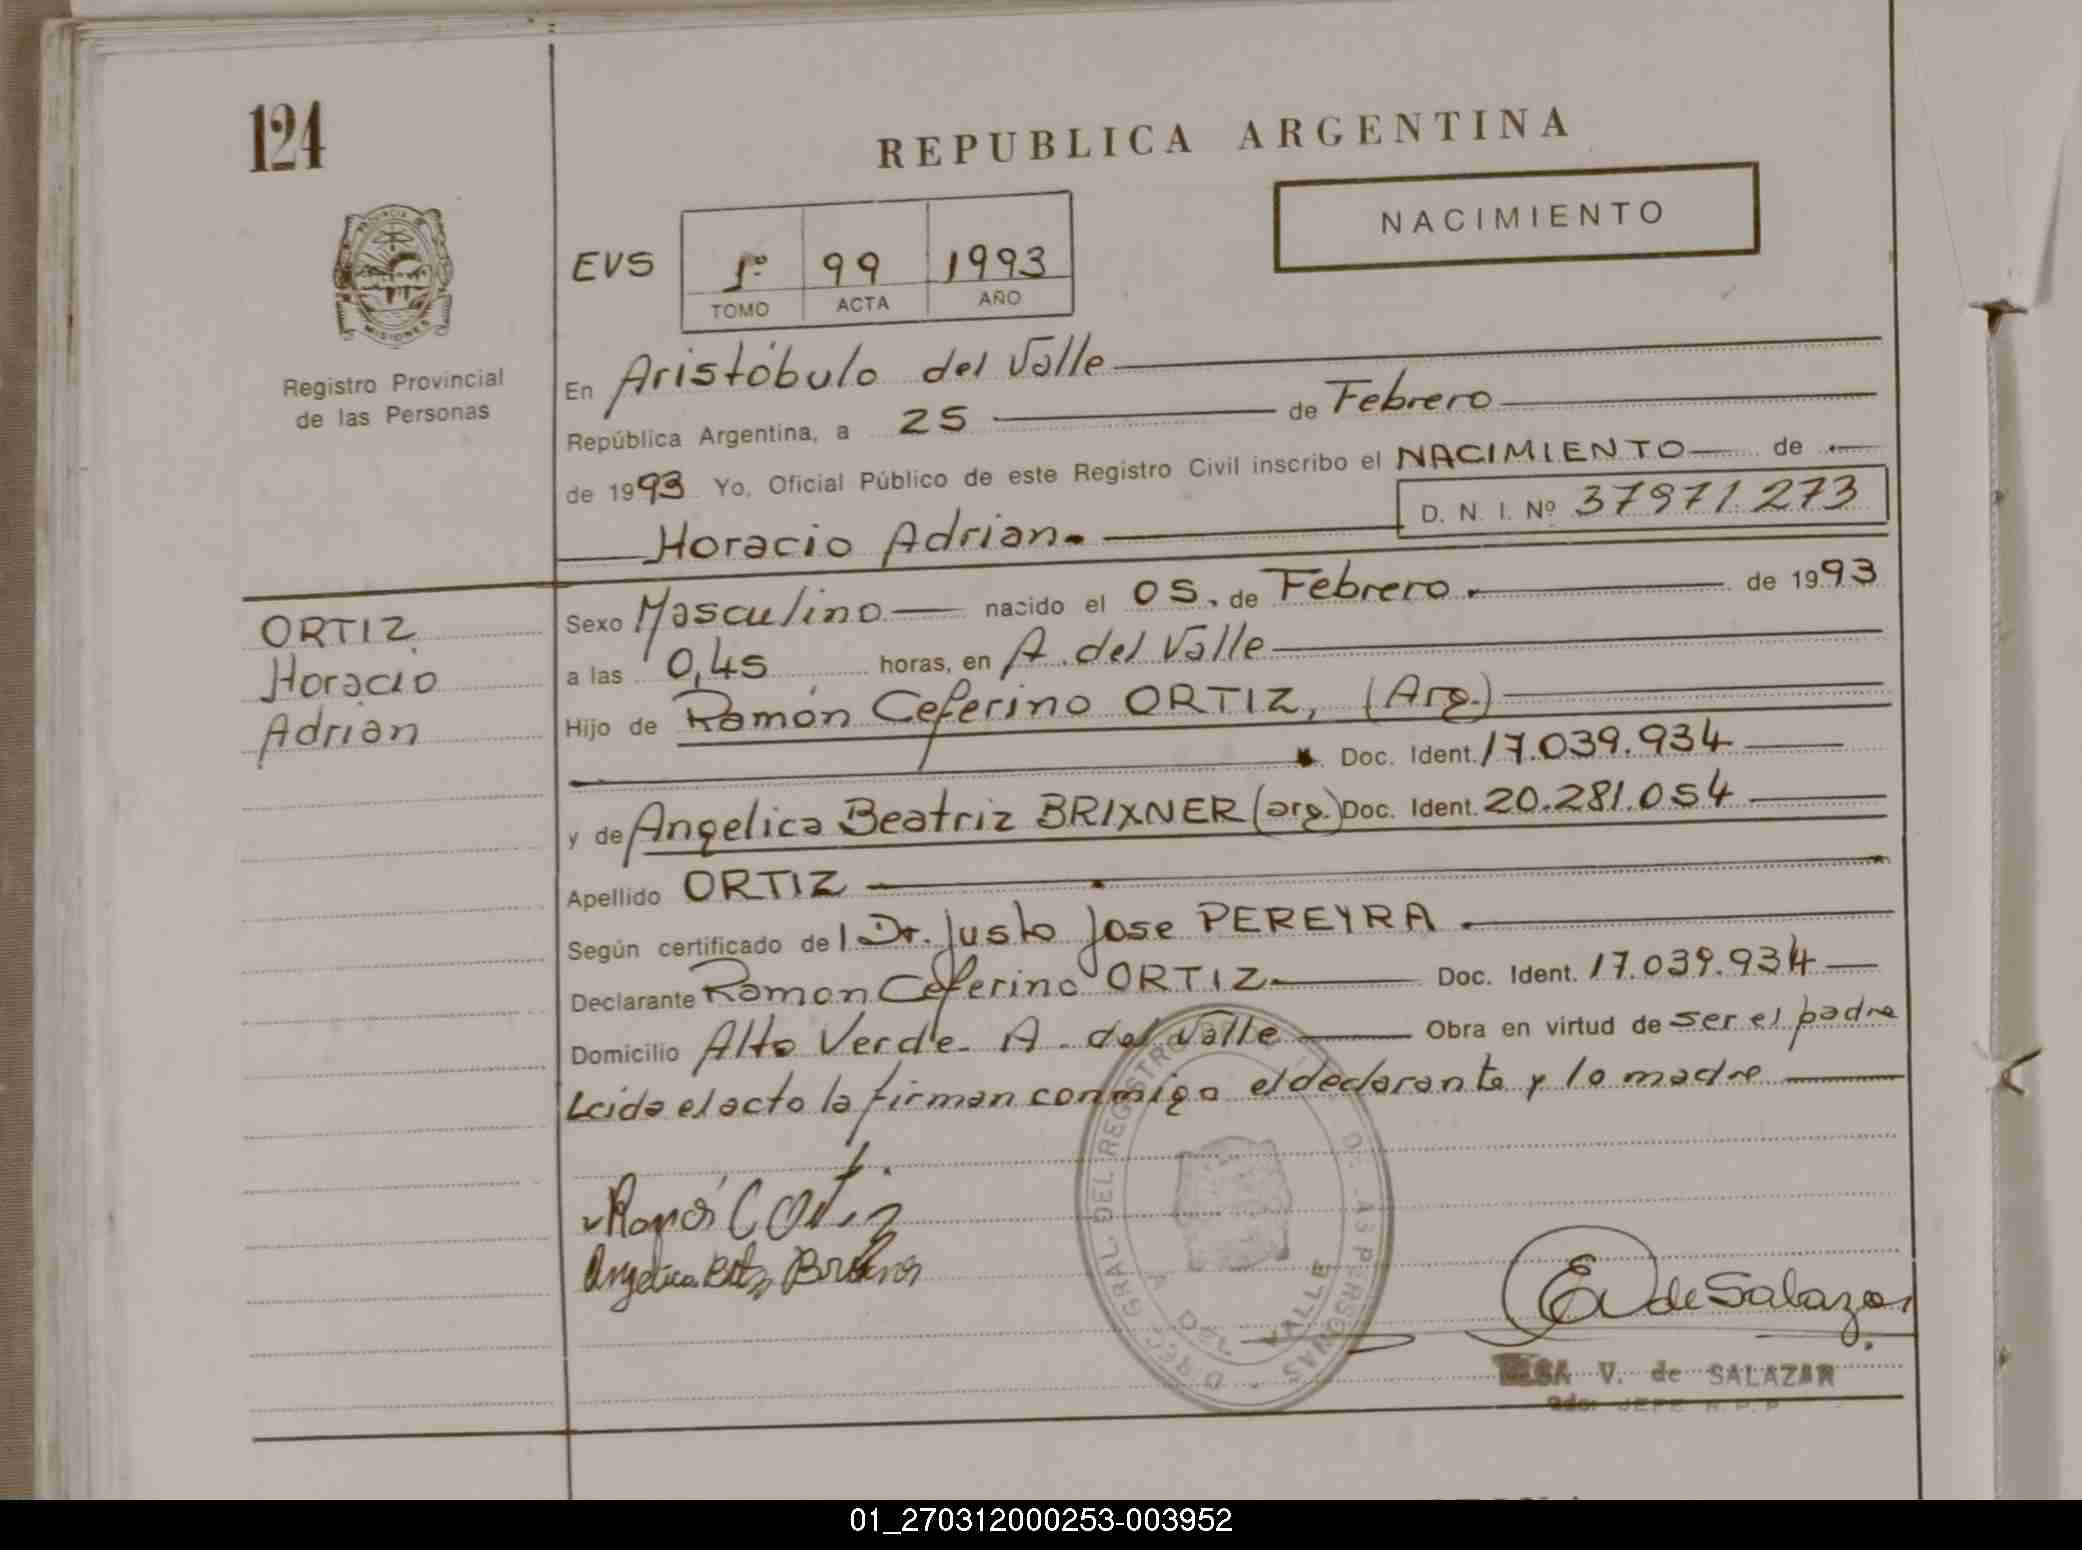 124
REPUBLICA ARGENTINA
NACIMIENTO
EVS
1º 99 1993
TOMO ACTA AÑO
PROVINCIA DE MISIONES
Registro Provincial
de las Personas
En Aristóbulo del Valle
República Argentina, a 25 de Febrero
de 1993 Yo, Oficial Público de este Registro Civil inscribo el NACIMIENTO de
D. N. I. Nº 37971.273
Horacio Adrian.
ORTIZ
Horacio
Adrian
Sexo Masculino nacido el 05. de Febrero. de 1993
a las 0,45 horas, en A. del Valle
Hijo de Ramón Ceferino ORTIZ, (Arg.)
Doc. Ident. 17.039.934
y de Angelica Beatriz BRIXNER (arg.) Doc. Ident. 20.281.054
Apellido ORTIZ
Según certificado del Dr. Justo Jose PEREYRA.
Declarante Ramon Ceferino ORTIZ Doc. Ident. 17.039.934
Domicilio Alto Verde. A. del Valle Obra en virtud de ser el padre
Leida el acto la firman conmigo el declarante y la madre
Ramon C Ortiz
Angelica Btz Brixner
DIREC. GRAL. DEL REGISTRO DE LAS PERSONAS
A. DEL VALLE
E V de Salazar
V. de SALAZAR
JEFE R.P.P
01_270312000253-003952